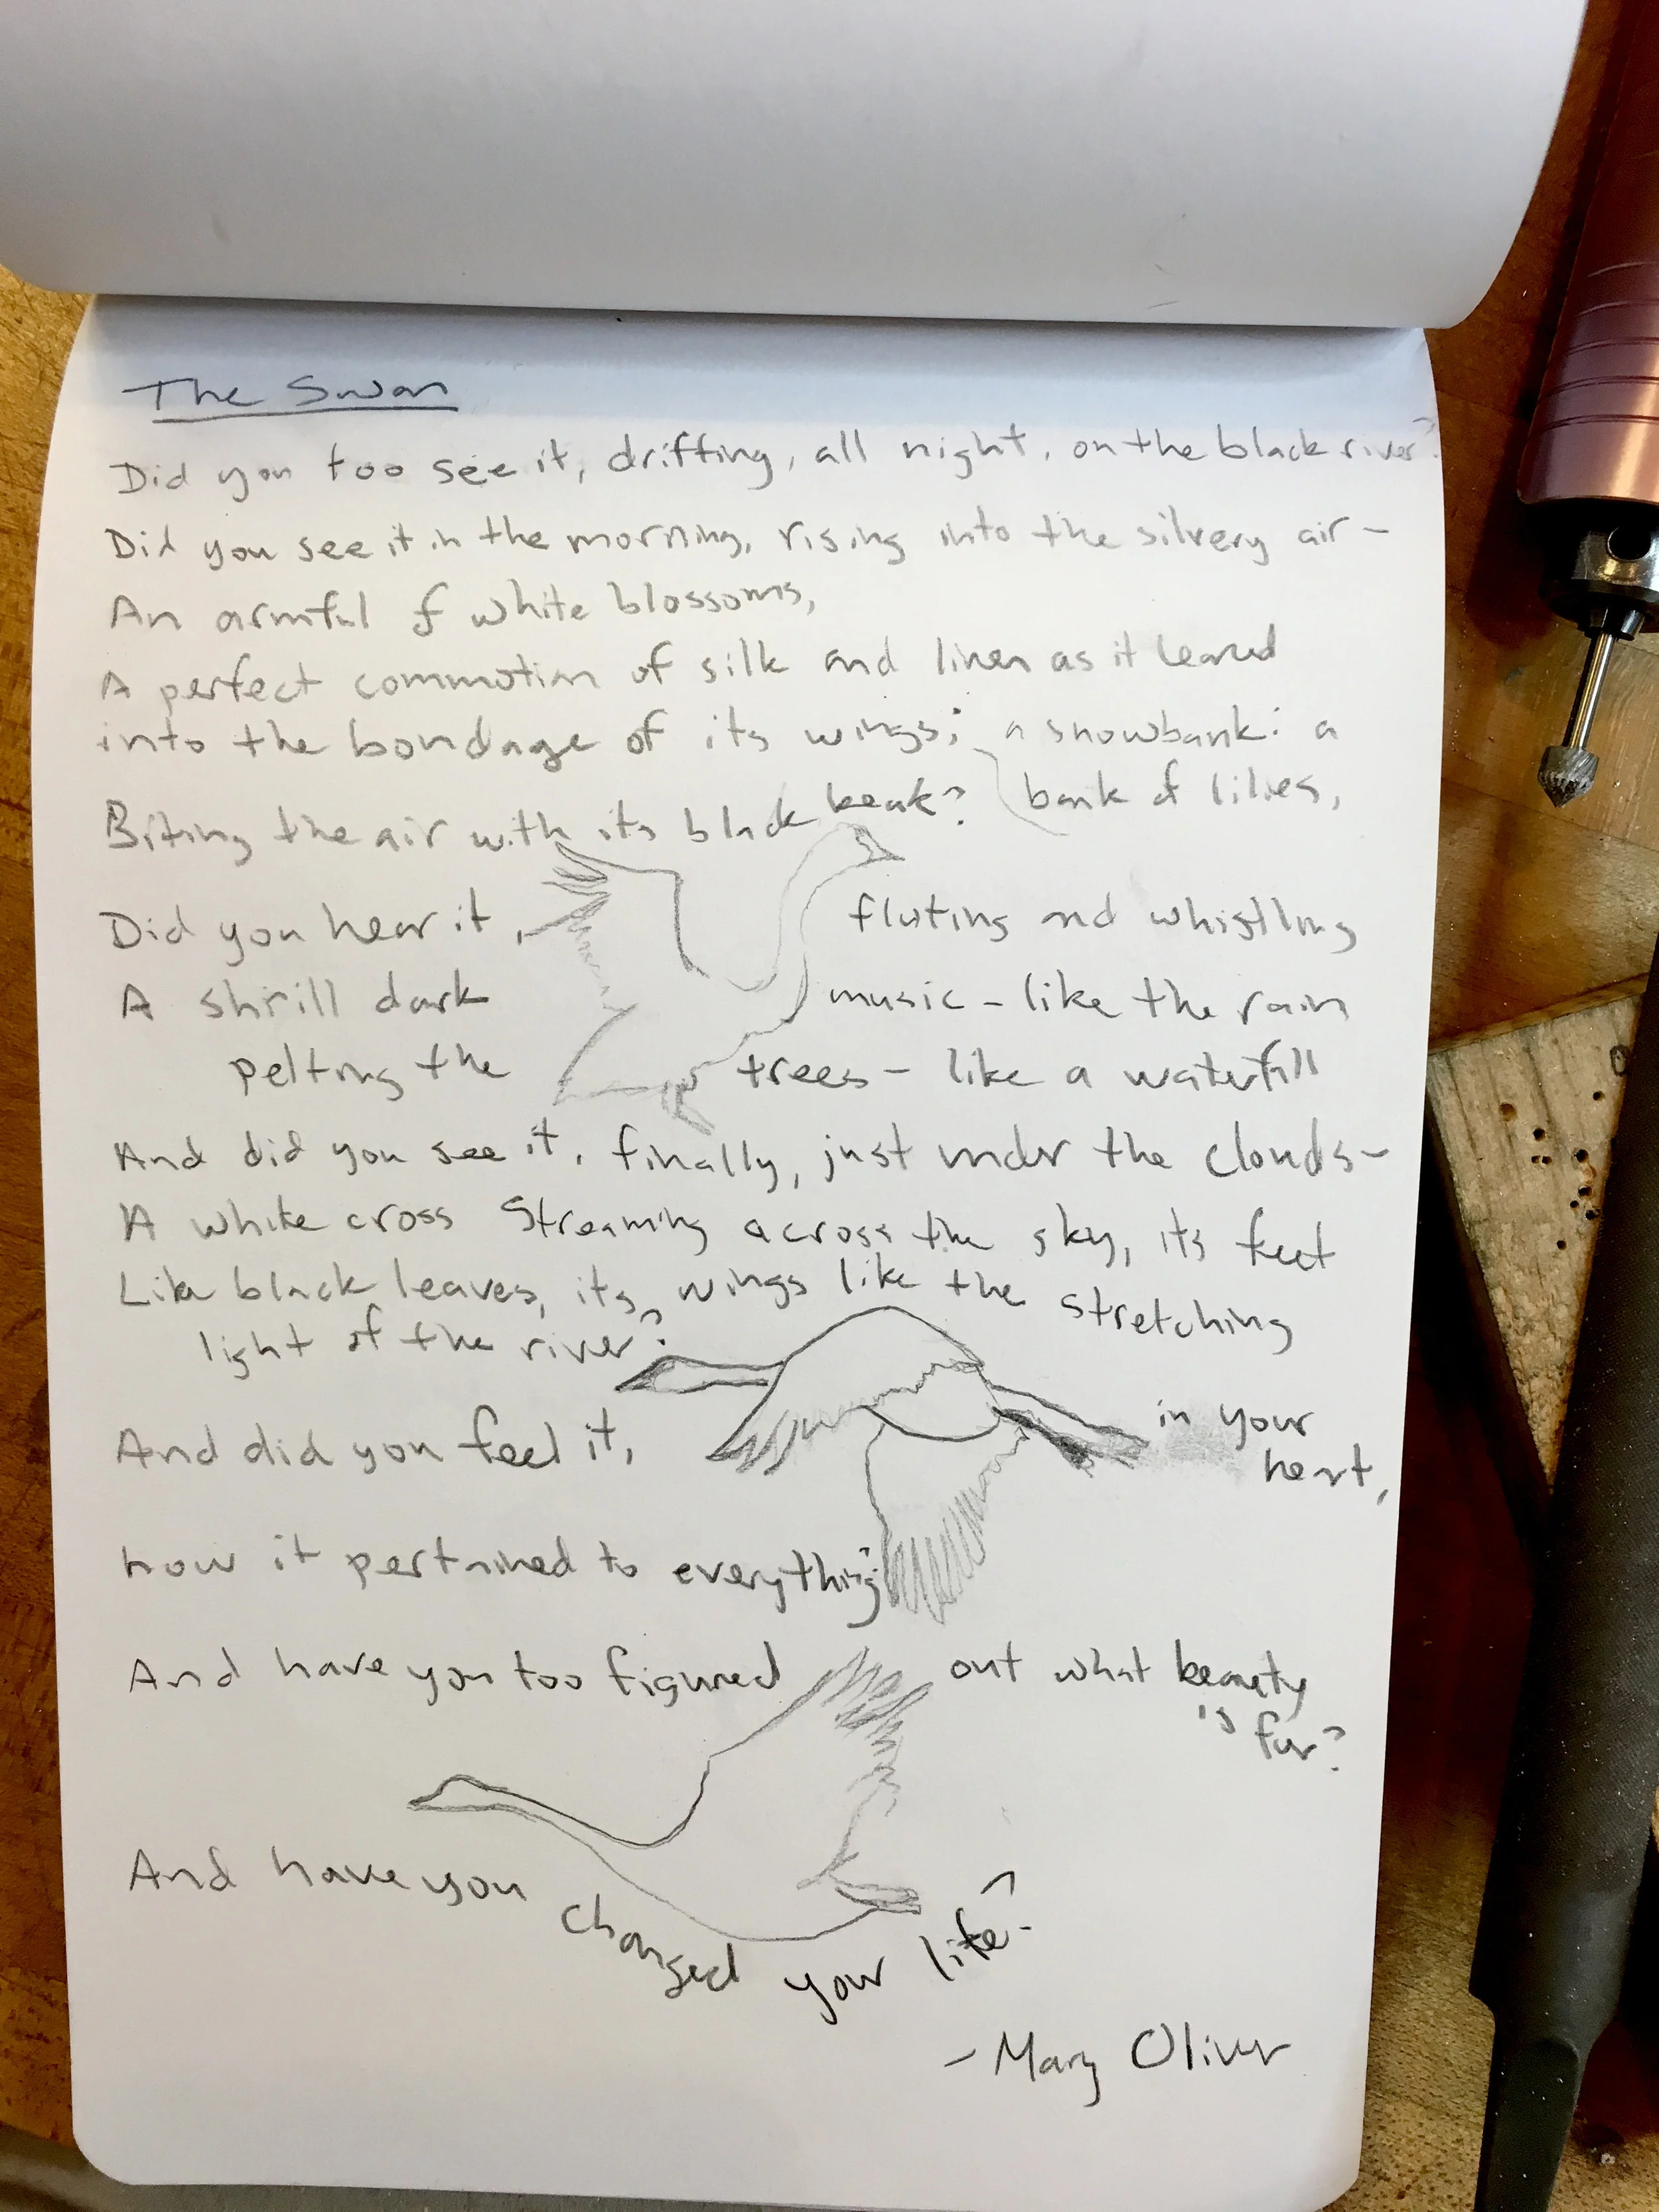 The Swan
Did you too see it, drifting, all night, on the black river?
Did you see it in the morning, rising into the silvery air -
An armful of white blossoms,
A perfect commotion of silk and linen as it leaned
into the bondage of its wings; a snowbank: a
bank of lilies,
Biting the air with its black beak?
Did you hear it, fluting and whistling
A shrill dark music - like the rain
pelting the trees - like a waterfall
And did you see it, finally, just under the clouds -
A white cross Streaming across the sky, its feet
Like black leaves, its wings like the stretching
light of the river?
And did you feel it, in your
heart,
how it pertained to everything?
And have you too figured out what beauty
is for?
And have you changed your life?
- Mary Oliver